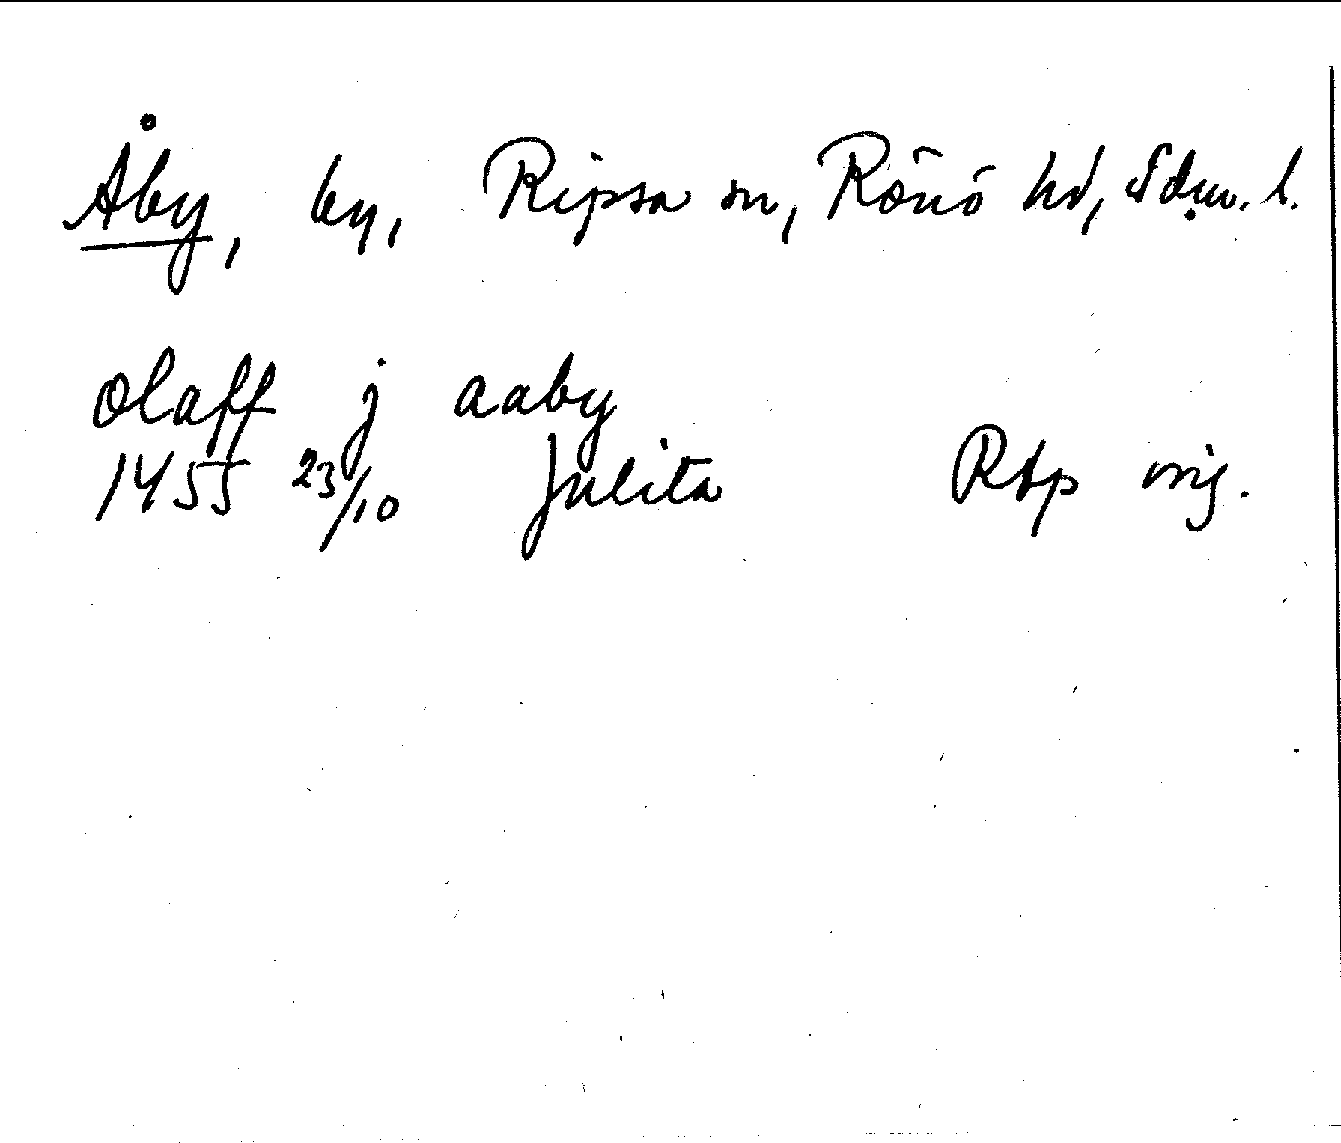 Åby, by, Ripsa sn, Rönö hd, Sdm. l.
olaff j aaby
1455 23/10 Julita Rbp orig.